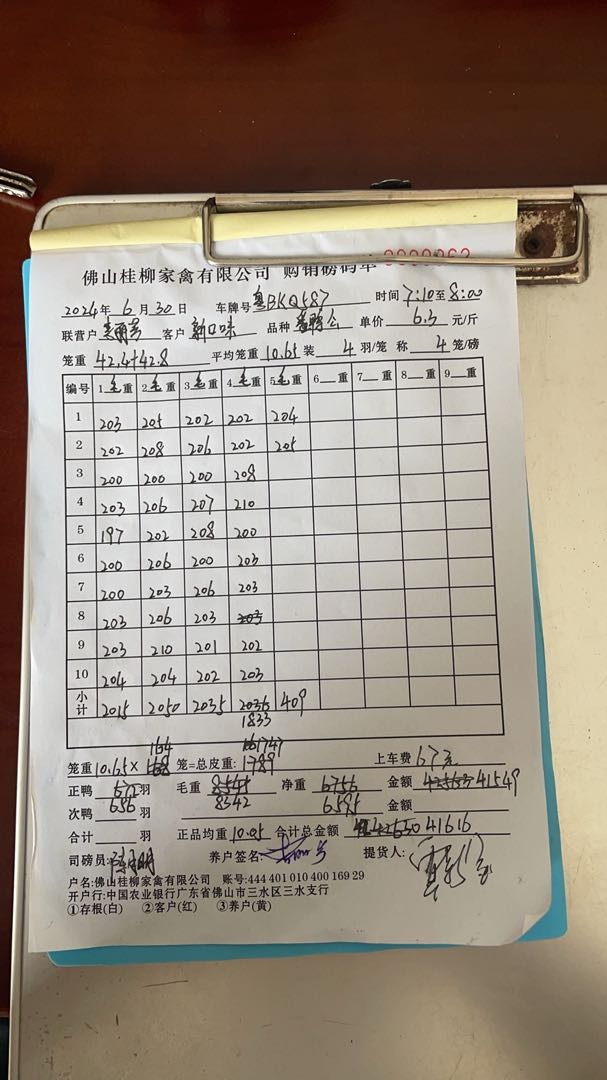 佛山桂柳家禽有限公司 购销磅码单
2024年 6月 30日 车牌号 粤BKQ587 时间 7:10至8:00
联营户 客户 新口味 品种 番鸭公 单价 6.3 元/斤
笼重 42.4+42.8 平均笼重 10.65 装 4 羽/笼 称 4 笼/磅
编号 1毛重 2毛重 3毛重 4毛重 5毛重 6__重 7__重 8__重 9__重
1 203 205 202 202 204
2 202 208 206 202 205
3 200 200 200 208
4 203 206 207 210
5 197 202 208 200
6 200 206 200 203
7 200 203 206 203
8 203 206 203 203
9 203 210 201 202
10 204 204 202 203
小计 2015 2050 2035 2036 409
1833
164 1747
笼重 10.65× 168 笼=总皮重: 1789 上车费 67元
正鸭 672 羽 毛重 8545 净重 6756 金额 42563 41549
次鸭 656 羽 8342 6595 金额
合计 羽 正品均重 10.05 合计总金额 42630 41616
司磅员: 养户签名: 提货人:
户名:佛山桂柳家禽有限公司 账号:444 401 010 400 169 29
开户行:中国农业银行广东省佛山市三水区三水支行
①存根(白) ②客户(红) ③养户(黄)